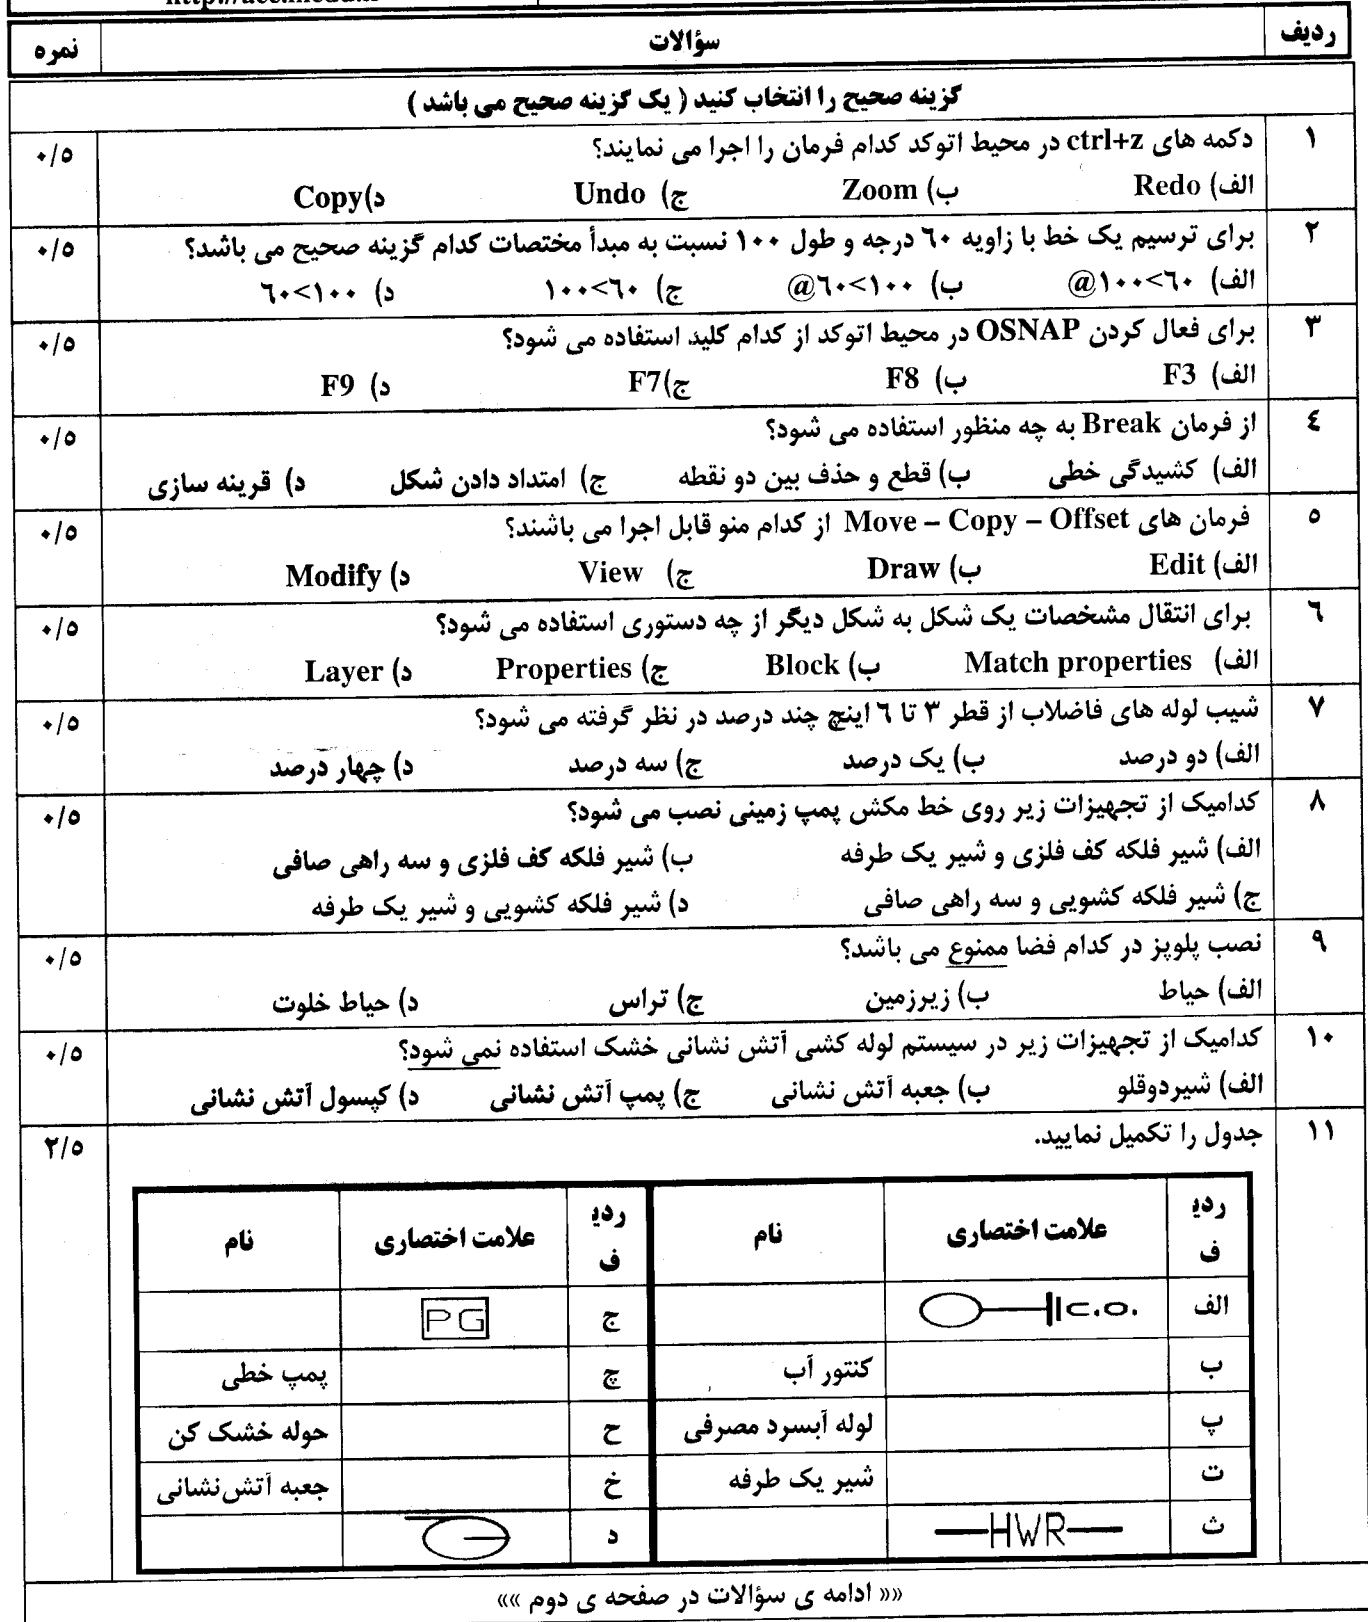 ردیف سؤالات نمره
گزینه صحیح را انتخاب کنید ( یک گزینه صحیح می باشد )
۱ دکمه های ctrl+z در محیط اتوکد کدام فرمان را اجرا می نمایند؟ ۰/۵
الف) Redo ب) Zoom ج) Undo د) Copy
۲ برای ترسیم یک خط با زاویه ٦۰ درجه و طول ۱۰۰ نسبت به مبدأ مختصات کدام گزینه صحیح می باشد؟ ۰/۵
الف) @۱۰۰<٦۰ ب) @٦۰<۱۰۰ ج) ۱۰۰<٦۰ د) ٦۰<۱۰۰
۳ برای فعال کردن OSNAP در محیط اتوکد از کدام کلید استفاده می شود؟ ۰/۵
الف) F3 ب) F8 ج) F7 د) F9
٤ از فرمان Break به چه منظور استفاده می شود؟ ۰/۵
الف) کشیدگی خطی ب) قطع و حذف بین دو نقطه ج) امتداد دادن شکل د) قرینه سازی
۵ فرمان های Move – Copy – Offset از کدام منو قابل اجرا می باشند؟ ۰/۵
الف) Edit ب) Draw ج) View د) Modify
٦ برای انتقال مشخصات یک شکل به شکل دیگر از چه دستوری استفاده می شود؟ ۰/۵
الف) Match properties ب) Block ج) Properties د) Layer
۷ شیب لوله های فاضلاب از قطر ۳ تا ٦ اینچ چند درصد در نظر گرفته می شود؟ ۰/۵
الف) دو درصد ب) یک درصد ج) سه درصد د) چهار درصد
۸ کدامیک از تجهیزات زیر روی خط مکش پمپ زمینی نصب می شود؟ ۰/۵
الف) شیر فلکه کف فلزی و شیر یک طرفه ب) شیر فلکه کف فلزی و سه راهی صافی
ج) شیر فلکه کشویی و سه راهی صافی د) شیر فلکه کشویی و شیر یک طرفه
۹ نصب پلوپز در کدام فضا ممنوع می باشد؟ ۰/۵
الف) حیاط ب) زیرزمین ج) تراس د) حیاط خلوت
۱۰ کدامیک از تجهیزات زیر در سیستم لوله کشی آتش نشانی خشک استفاده نمی شود؟ ۰/۵
الف) شیردوقلو ب) جعبه آتش نشانی ج) پمپ آتش نشانی د) کپسول آتش نشانی
۱۱ جدول را تکمیل نمایید. ۲/۵
ردیف علامت اختصاری نام ردیف علامت اختصاری نام
الف C.O. ج PG
ب کنتور آب چ پمپ خطی
پ لوله آبسرد مصرفی ح حوله خشک کن
ت شیر یک طرفه خ جعبه آتش‌نشانی
ث HWR د
«« ادامه ی سؤالات در صفحه ی دوم »»